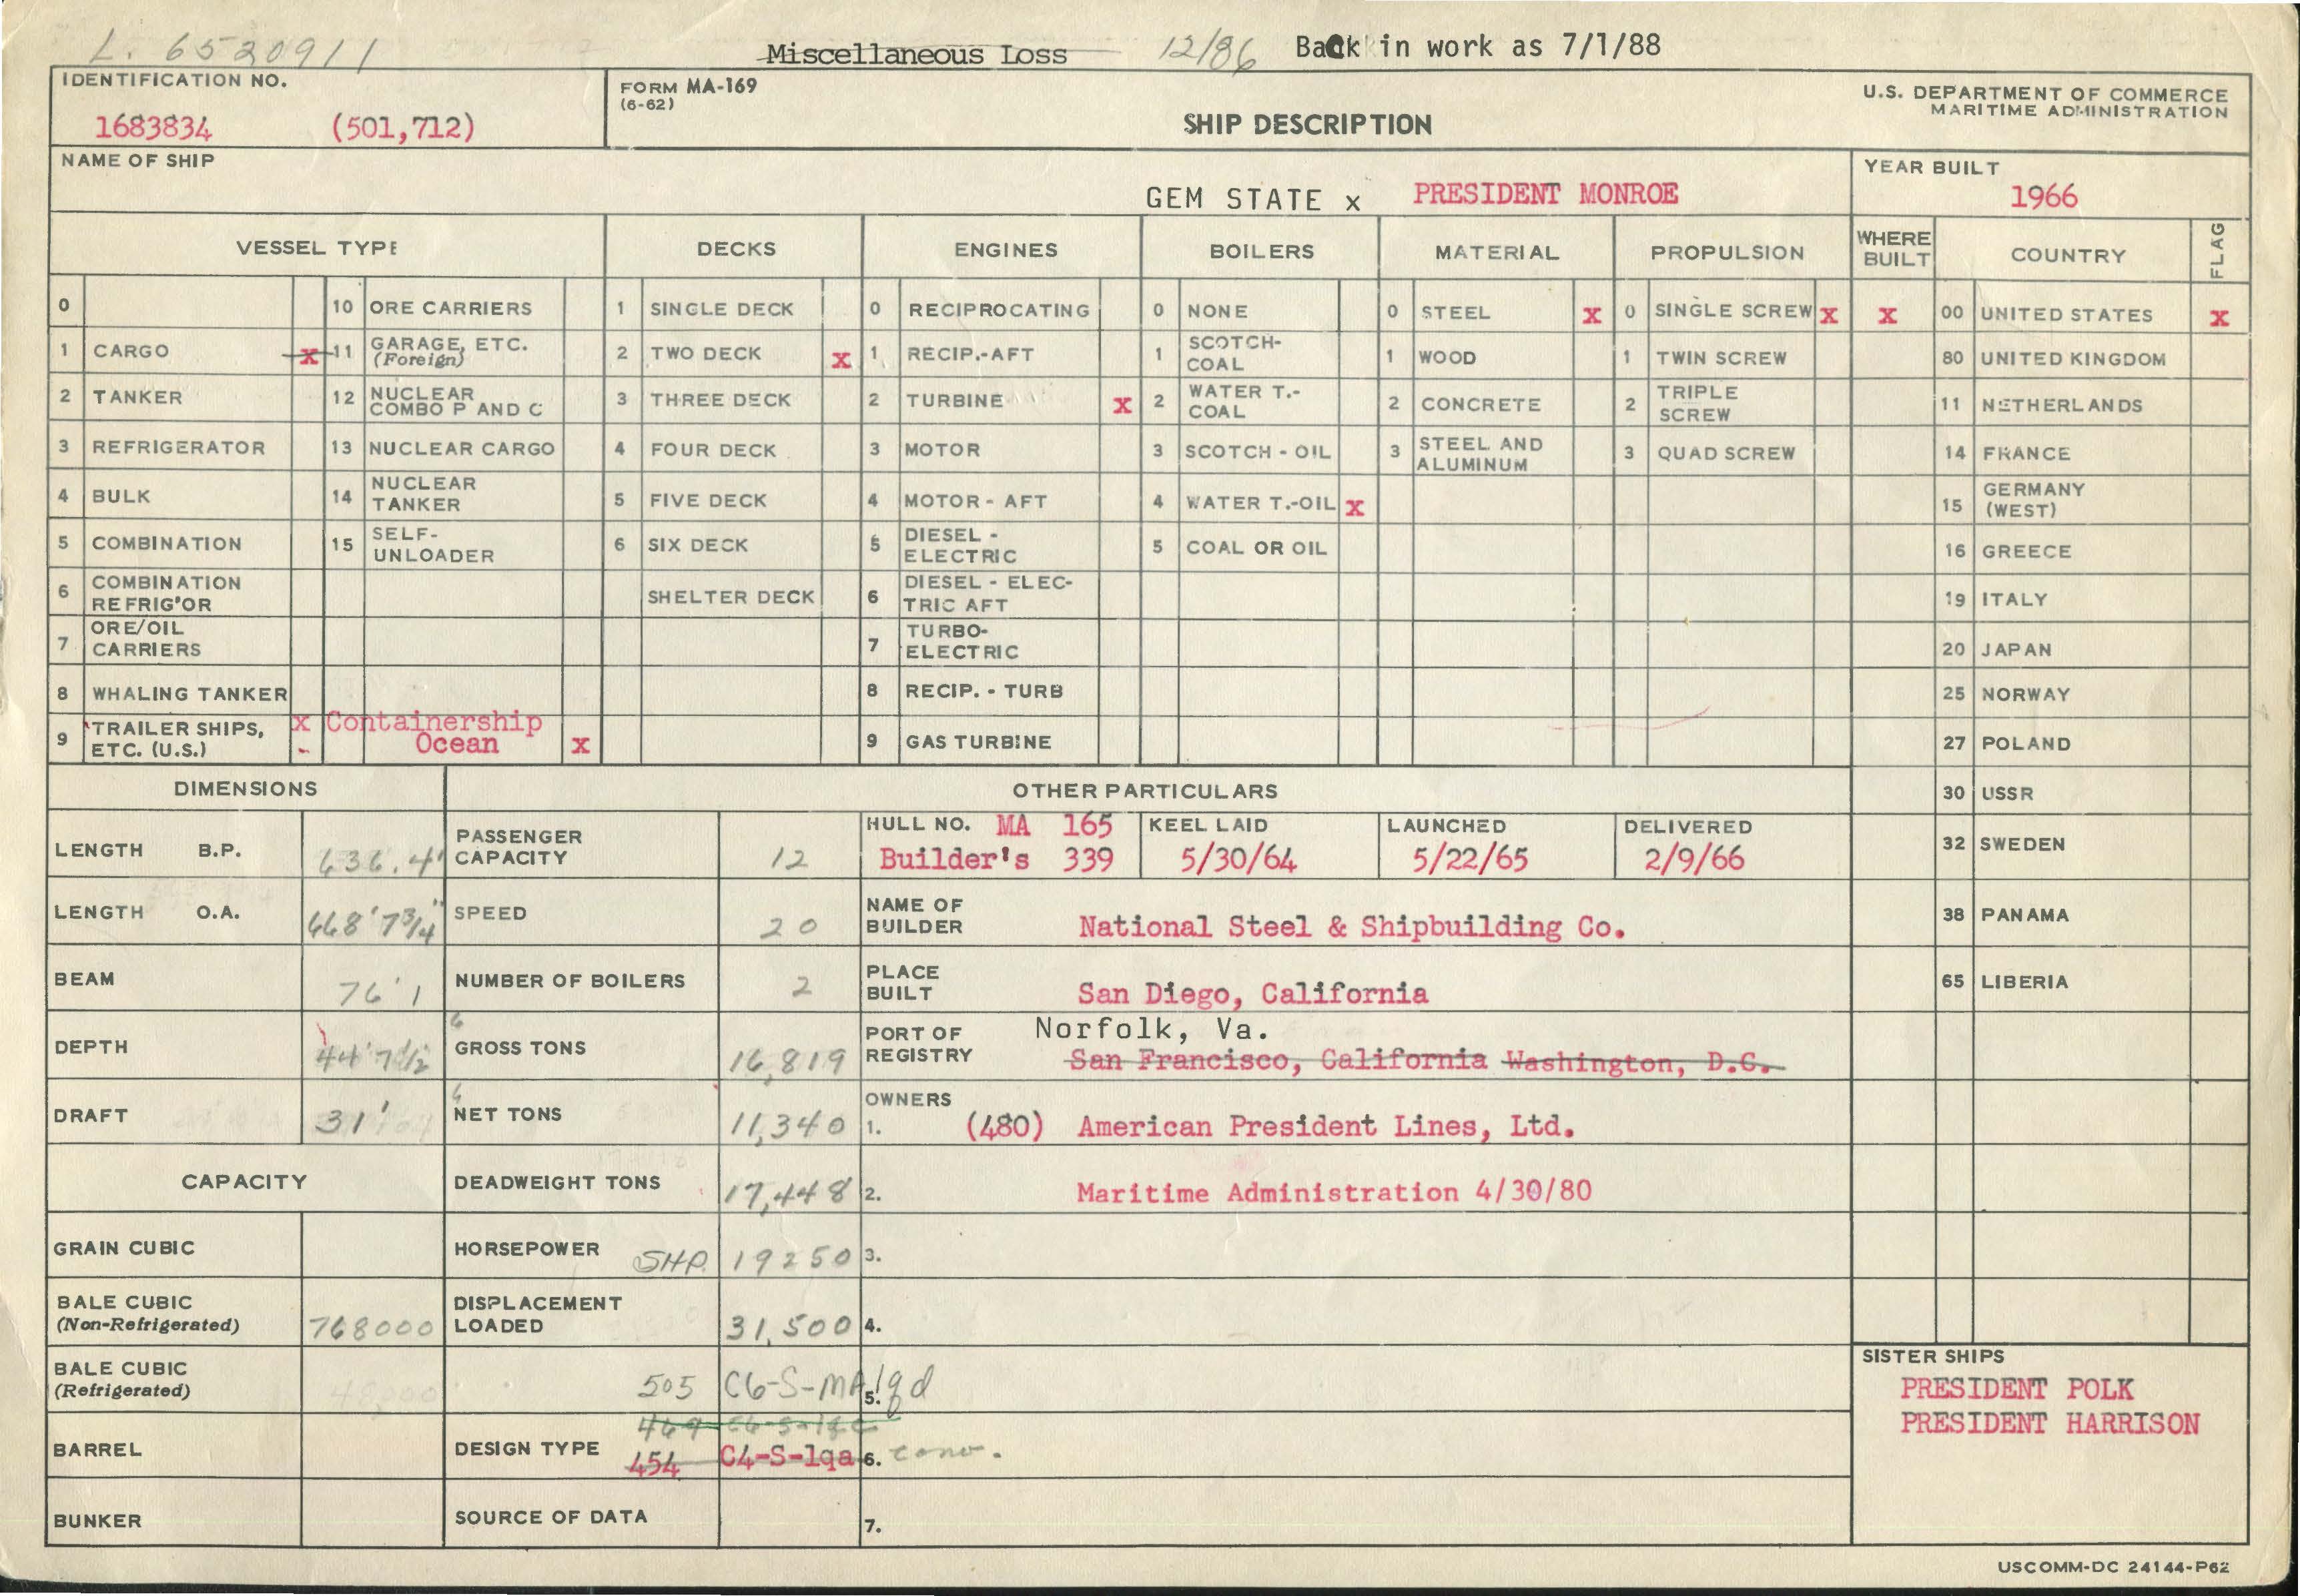 L. 6520911 Miscellaneous Loss 12/86 Back in work as 7/1/88
IDENTIFICATION NO.
1683834 (501,712)
FORM MA-169
(6-62)
SHIP DESCRIPTION
U.S. DEPARTMENT OF COMMERCE
MARITIME ADMINISTRATION
NAME OF SHIP
GEM STATE x PRESIDENT MONROE
YEAR BUILT
1966
VESSEL TYPE DECKS ENGINES BOILERS MATERIAL PROPULSION WHERE BUILT COUNTRY FLAG
0 10 ORE CARRIERS 1 SINGLE DECK 0 RECIPROCATING 0 NONE 0 STEEL x 0 SINGLE SCREW x x 00 UNITED STATES x
1 CARGO x 11 GARAGE, ETC. (Foreign) 2 TWO DECK x 1 RECIP.-AFT 1 SCOTCH-COAL 1 WOOD 1 TWIN SCREW 80 UNITED KINGDOM
2 TANKER 12 NUCLEAR COMBO P AND C 3 THREE DECK 2 TURBINE x 2 WATER T.-COAL 2 CONCRETE 2 TRIPLE SCREW 11 NETHERLANDS
3 REFRIGERATOR 13 NUCLEAR CARGO 4 FOUR DECK 3 MOTOR 3 SCOTCH - OIL 3 STEEL AND ALUMINUM 3 QUAD SCREW 14 FRANCE
4 BULK 14 NUCLEAR TANKER 5 FIVE DECK 4 MOTOR - AFT 4 WATER T.-OIL x 15 GERMANY (WEST)
5 COMBINATION 15 SELF-UNLOADER 6 SIX DECK 5 DIESEL - ELECTRIC 5 COAL OR OIL 16 GREECE
6 COMBINATION REFRIG'OR SHELTER DECK 6 DIESEL - ELECTRIC AFT 19 ITALY
7 ORE/OIL CARRIERS 7 TURBO-ELECTRIC 20 JAPAN
8 WHALING TANKER 8 RECIP. - TURB 25 NORWAY
9 TRAILER SHIPS, ETC. (U.S.) x Containership Ocean x 9 GAS TURBINE 27 POLAND
DIMENSIONS OTHER PARTICULARS 30 USSR
LENGTH B.P. 636.4' PASSENGER CAPACITY 12
HULL NO. MA 165 KEEL LAID LAUNCHED DELIVERED
Builder's 339 5/30/64 5/22/65 2/9/66
32 SWEDEN
LENGTH O.A. 668'7 3/4" SPEED 20
NAME OF BUILDER National Steel & Shipbuilding Co.
38 PANAMA
BEAM 76'1 NUMBER OF BOILERS 2
PLACE BUILT San Diego, California
65 LIBERIA
DEPTH 44'7 1/2 GROSS TONS 16,819
PORT OF REGISTRY Norfolk, Va.
San Francisco, California Washington, D.C.
DRAFT 31' NET TONS 11,340
OWNERS
1. (480) American President Lines, Ltd.
CAPACITY DEADWEIGHT TONS 17,448 2. Maritime Administration 4/30/80
GRAIN CUBIC HORSEPOWER SHP. 19250 3.
BALE CUBIC (Non-Refrigerated) 768000 DISPLACEMENT LOADED 31,500 4.
BALE CUBIC (Refrigerated) 505 C6-S-MA1qd 5.
SISTER SHIPS
PRESIDENT POLK
PRESIDENT HARRISON
469 C6-S-1qc
BARREL DESIGN TYPE 454 C4-S-1qa 6. conv.
BUNKER SOURCE OF DATA 7.
USCOMM-DC 24144-P62